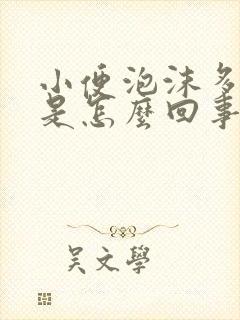 小便泡沫多
是怎麼回事
吴文學